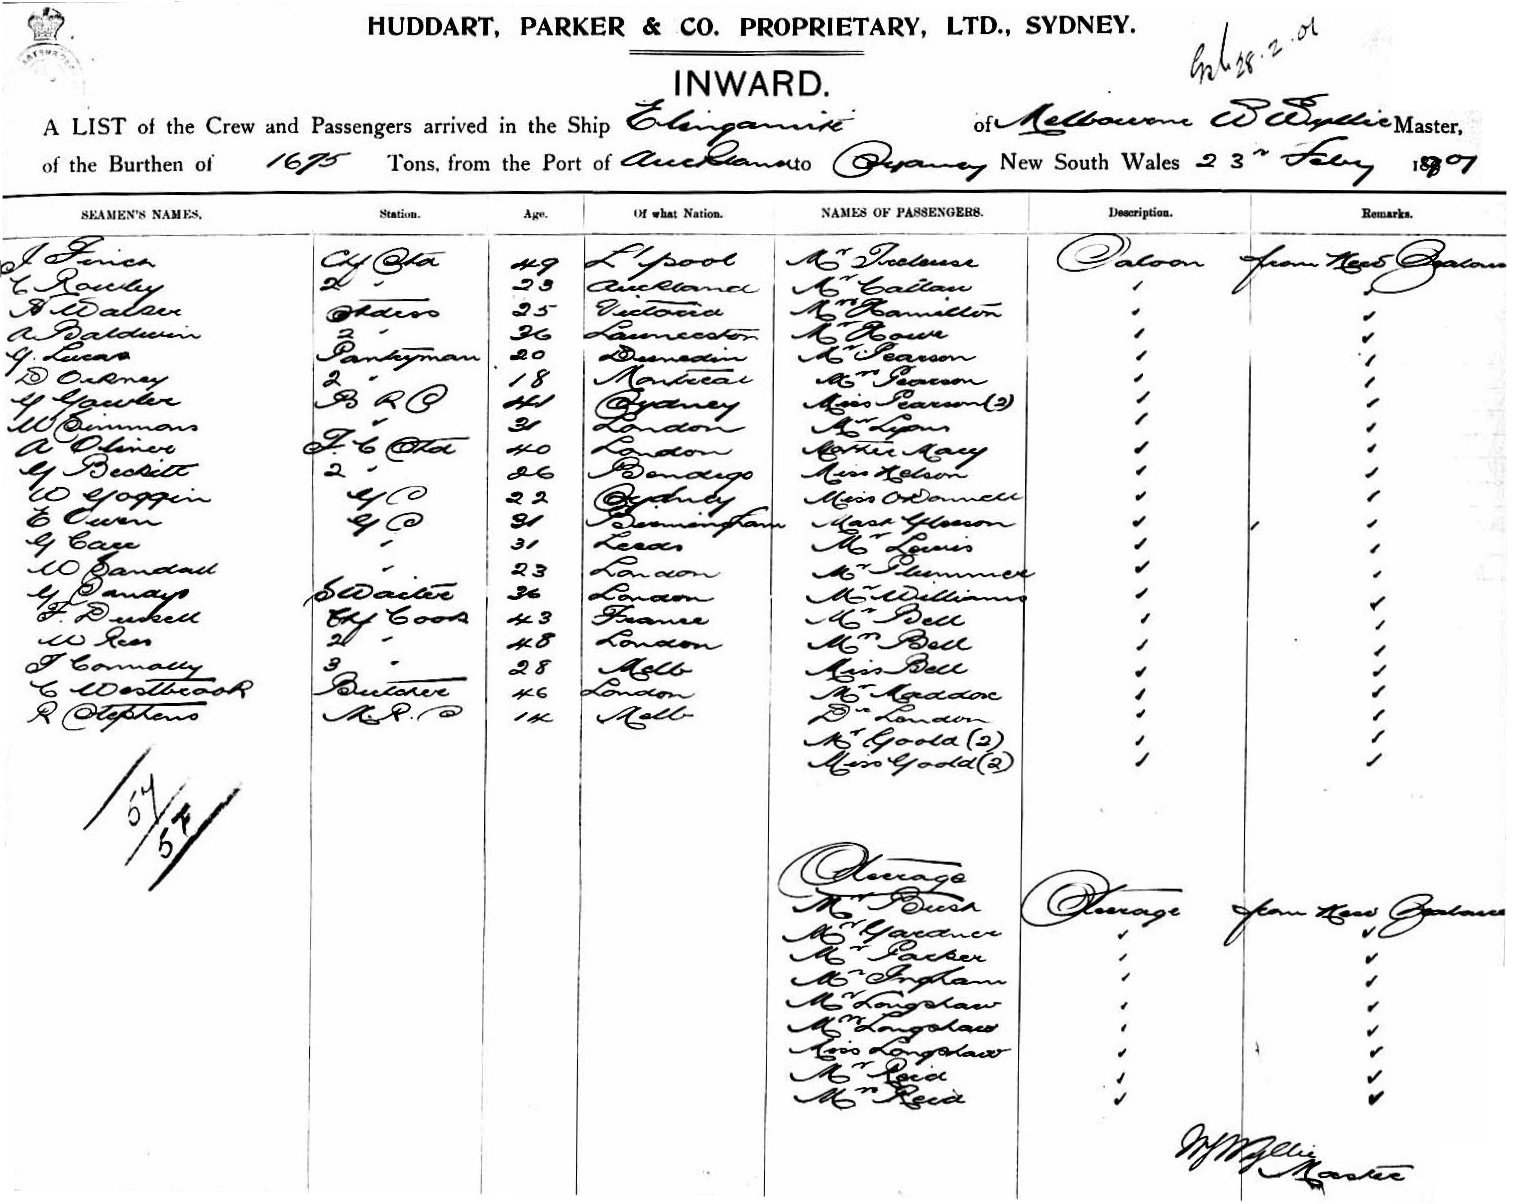 HUDDART, PARKER & CO. PROPRIETARY, LTD., SYDNEY.
28.2.01
INWARD.
A LIST of the Crew and Passengers arrived in the Ship Elingamite of Melbourne W Wyllie Master,
of the Burthen of 1675 Tons, from the Port of Auckland to Sydney New South Wales 23rd Feby 1901
SEAMEN'S NAMES. Station. Age. Of what Nation. NAMES OF PASSENGERS. Description. Remarks.
J Finch Chf Std 49 L'pool Mr Saloon from New Zealand
C Rowley 2 " 23 Auckland Mr Callan " "
A Walker Stdess 25 Victoria Mrs Hamilton " "
A Baldwin 2 " 36 Launceston Mr Howe " "
G. Lucas Pantryman 20 Dunedin Mr Pearson " "
D Orkney 2 " 18 Montreal Mrs Pearson " "
G Gawler B R S 41 Sydney Miss Pearson (2) " "
W Simmons " 31 London Mr Lyons " "
A Oliver F. C Std 40 London Mother Mary " "
G Beckett 2 " 26 Bendigo Miss Nelson " "
W Goggin G S 22 Sydney Miss O'Donnell " "
E Owen G S 31 Birmingham Mast Gleeson " "
G Carr " 31 Leeds Mr Lewis " "
W Sandall " 23 London Mr Plummer " "
G Sandys S Waiter 36 London Mr Williams " "
F. Chf Cook 43 France Mr Bell " "
W Rees 2 " 48 London Mrs Bell " "
T Connally 3 " 28 Melb Miss Bell " "
C Westbrook Butcher 46 London Mr Maddox " "
R Stephens M. R. S 14 Melb Dr London " "
Mr Goold (2) " "
Miss Goold (2) " "
57/57
Steerage
Mr Bush Steerage from New Zealand
Mr Gardner " "
Mr Parker " "
Mr Ingham " "
Mr Longshaw " "
Mrs Longshaw " "
Miss Longshaw " "
Mr Reid " "
Mrs Reid " "
Wyllie
Master